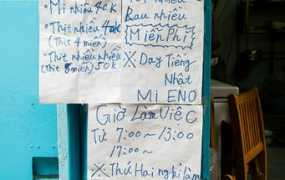 Mì nhiều 40k
Rau nhiều
• Thịt nhiều 40k
Miễn Phí
(Thịt 4 miến)
• Thịt nhiều nhiều
(Thịt 8 miến) 50k
※ Dạy Tiếng
Nhật
MI ENO
Giờ Làm Việc
Từ 7:00~13:00
17:00~
※ Thứ Hai nghỉ làm